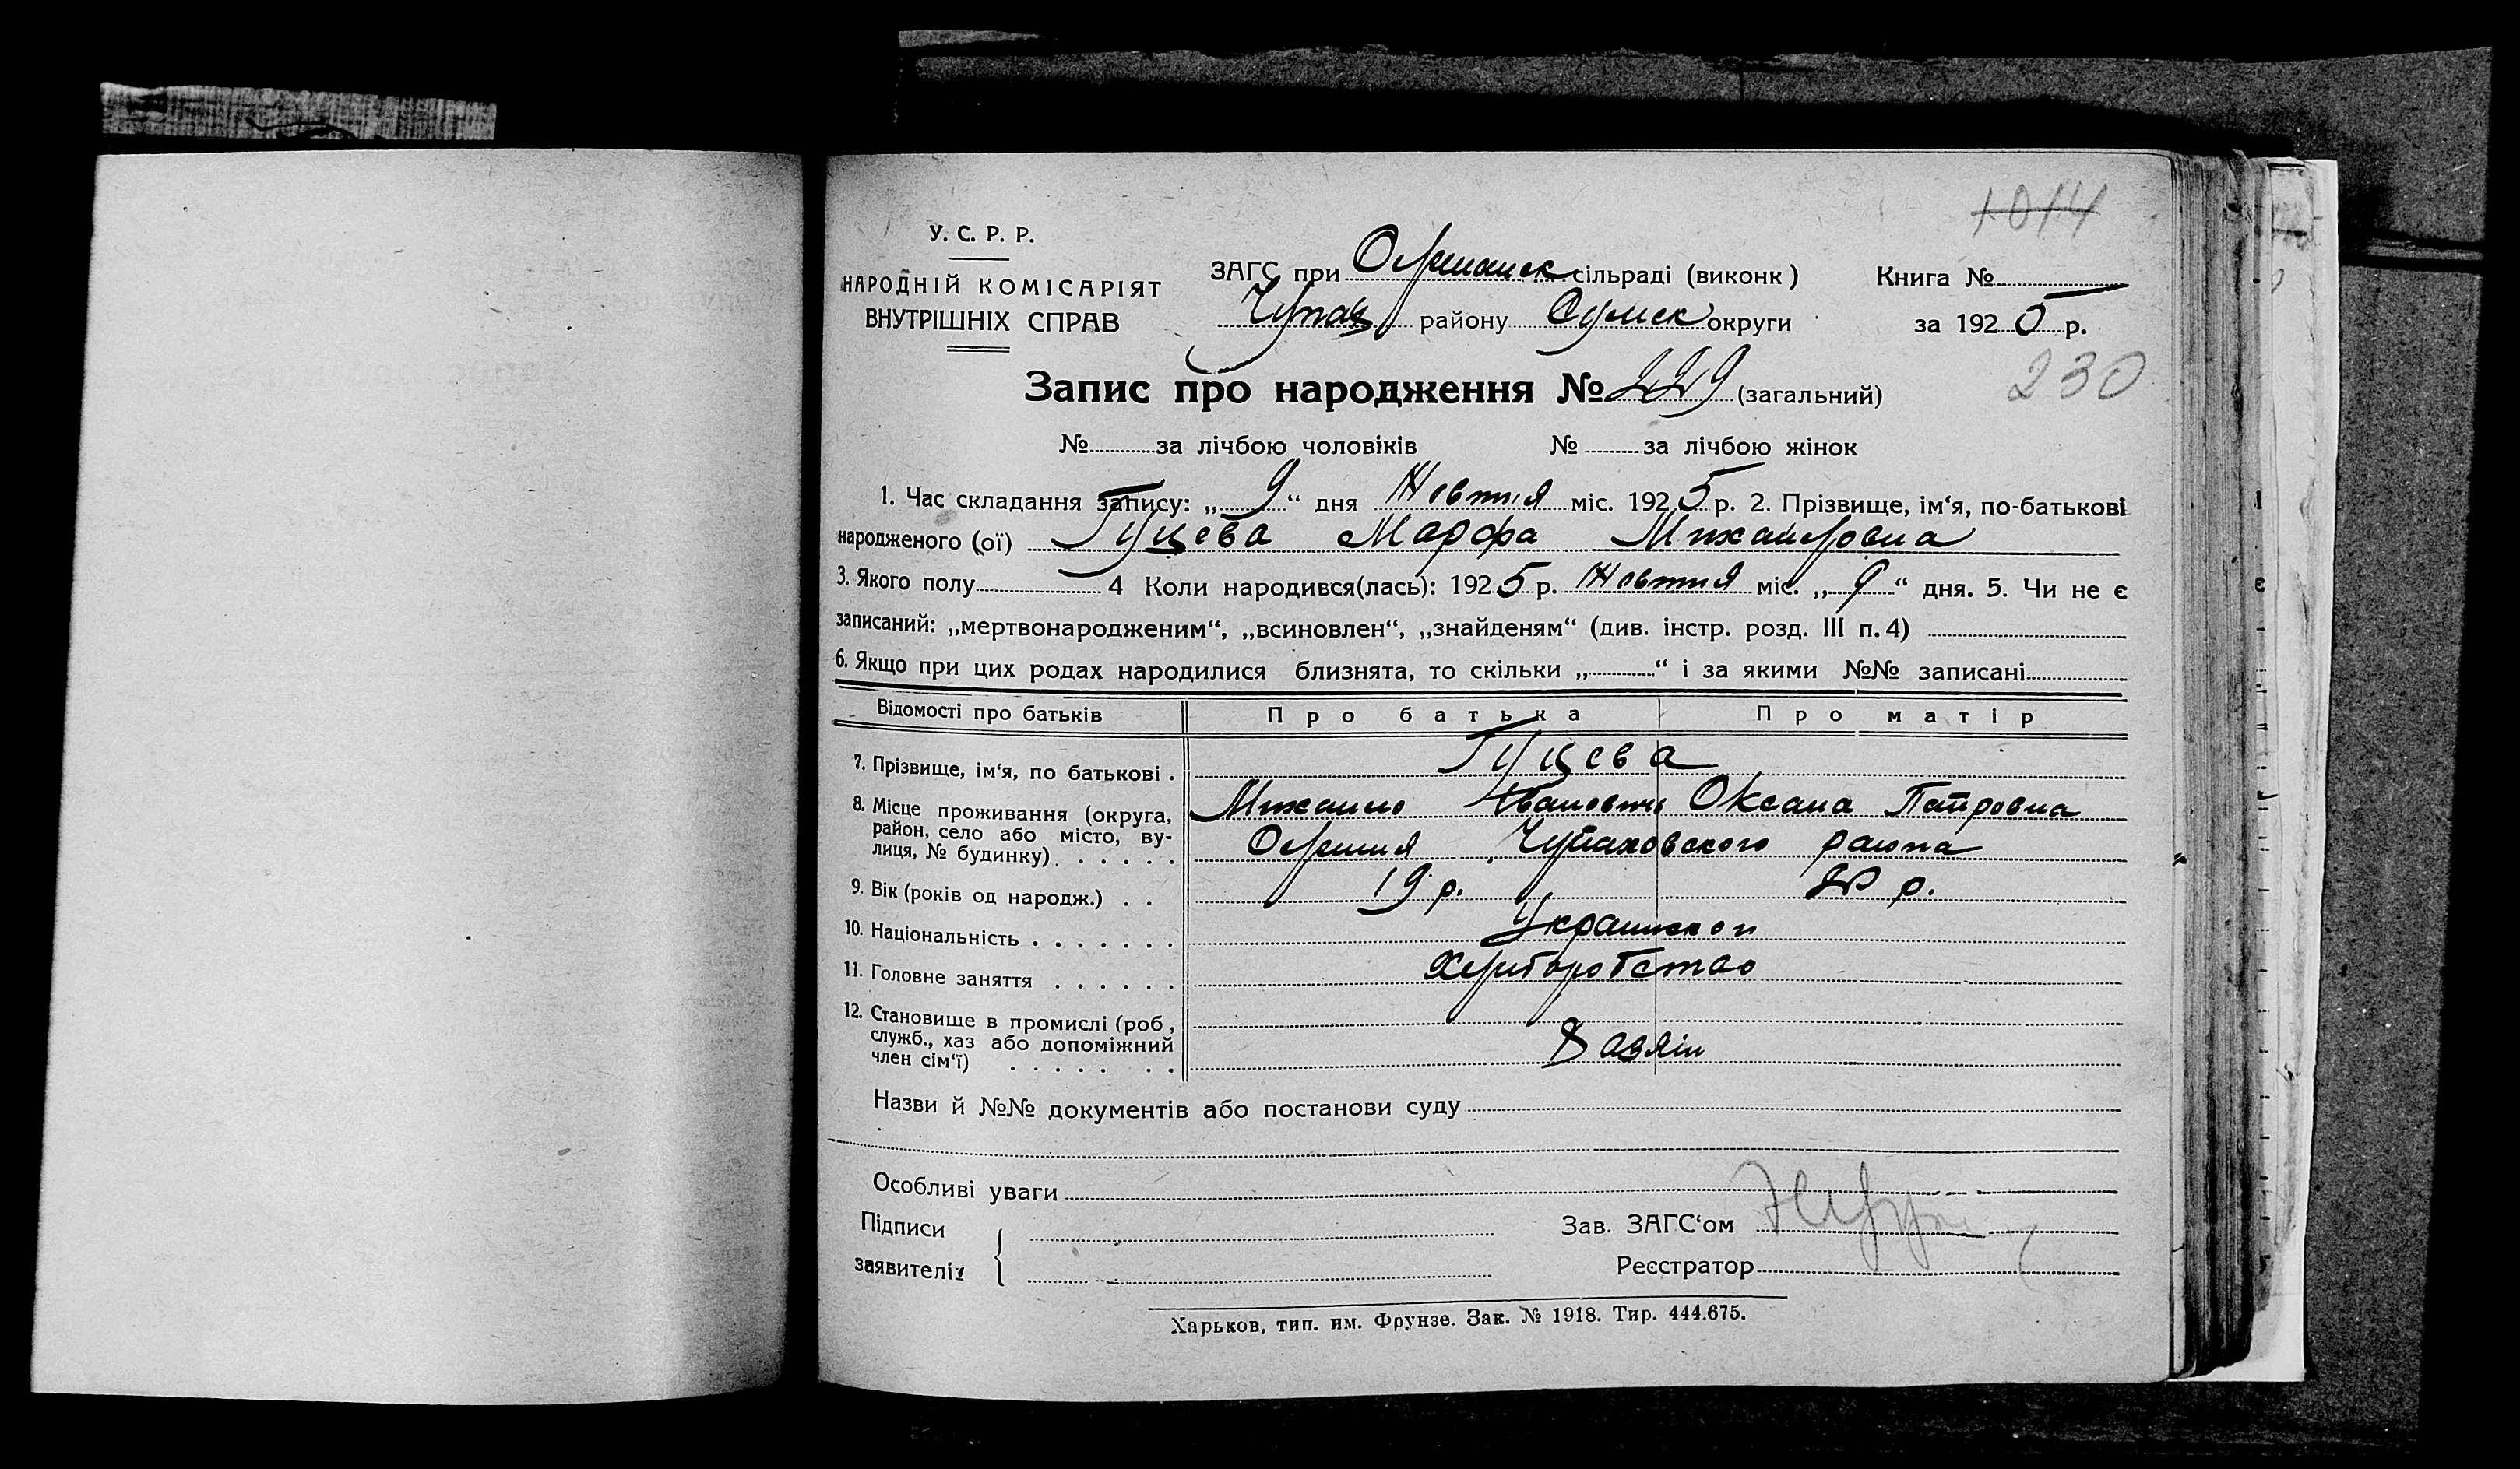 1014
У. С. Р. Р.
НАРОДНІЙ КОМІСАРІЯТ
ВНУТРІШНІХ СПРАВ
ЗАГС при Олешанск сільраді (виконк)
Чупах району Сумск округи
Книга №
за 1925 р.
Запис про народження № 229 (загальний)
230
№ за лічбою чоловіків № за лічбою жінок
1. Час складання запису: „9“ дня Жовтня міс. 1925 р. 2. Прізвище, ім‘я, по-батькові
народженого (ої) Гуцева Марфа Михайловна
3. Якого полу 4 Коли народився(лась): 1925 р. Жовтня міс. „9“ дня. 5. Чи не є
записаний: „мертвонародженим“, „всиновлен“, „знайденям“ (див. інстр. розд. III п. 4)
6. Якщо при цих родах народилися близнята, то скільки „ “ і за якими №№ записані
Відомості про батьків Про батька Про матір
7. Прізвище, ім‘я, по батькові . Гуцева
Михаило Іванович Оксана Петровна
8. Місце проживання (округа,
район, село або місто, ву-
лиця, № будинку) . . . . . Олешня Чупаховского раиона
9. Вік (років од народж.) . . 19 р. 20 р.
10. Національність . . . . . . . Украинскои
11. Головне заняття . . . . . . Хлиборобство
12. Становище в промислі (роб,
служб., хаз або допоміжний
член сім‘ї) . . . . . . . Хазяїн
Назви й №№ документів або постанови суду
Особливі уваги
Підписи
заявителів
Зав. ЗАГС‘ом
Реєстратор
Харьков, тип. им. Фрунзе. Зак. № 1918. Тир. 444.675.